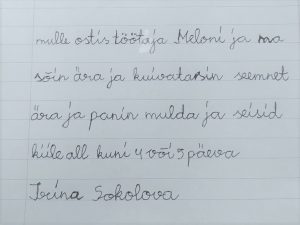 mulle ostis töötaja Meloni ja ma
sõin ära ja kuivatasin seemnet
ära ja panin mulda ja seisid
kiile all kuni 4 või 5 päeva
Irina Sokolova